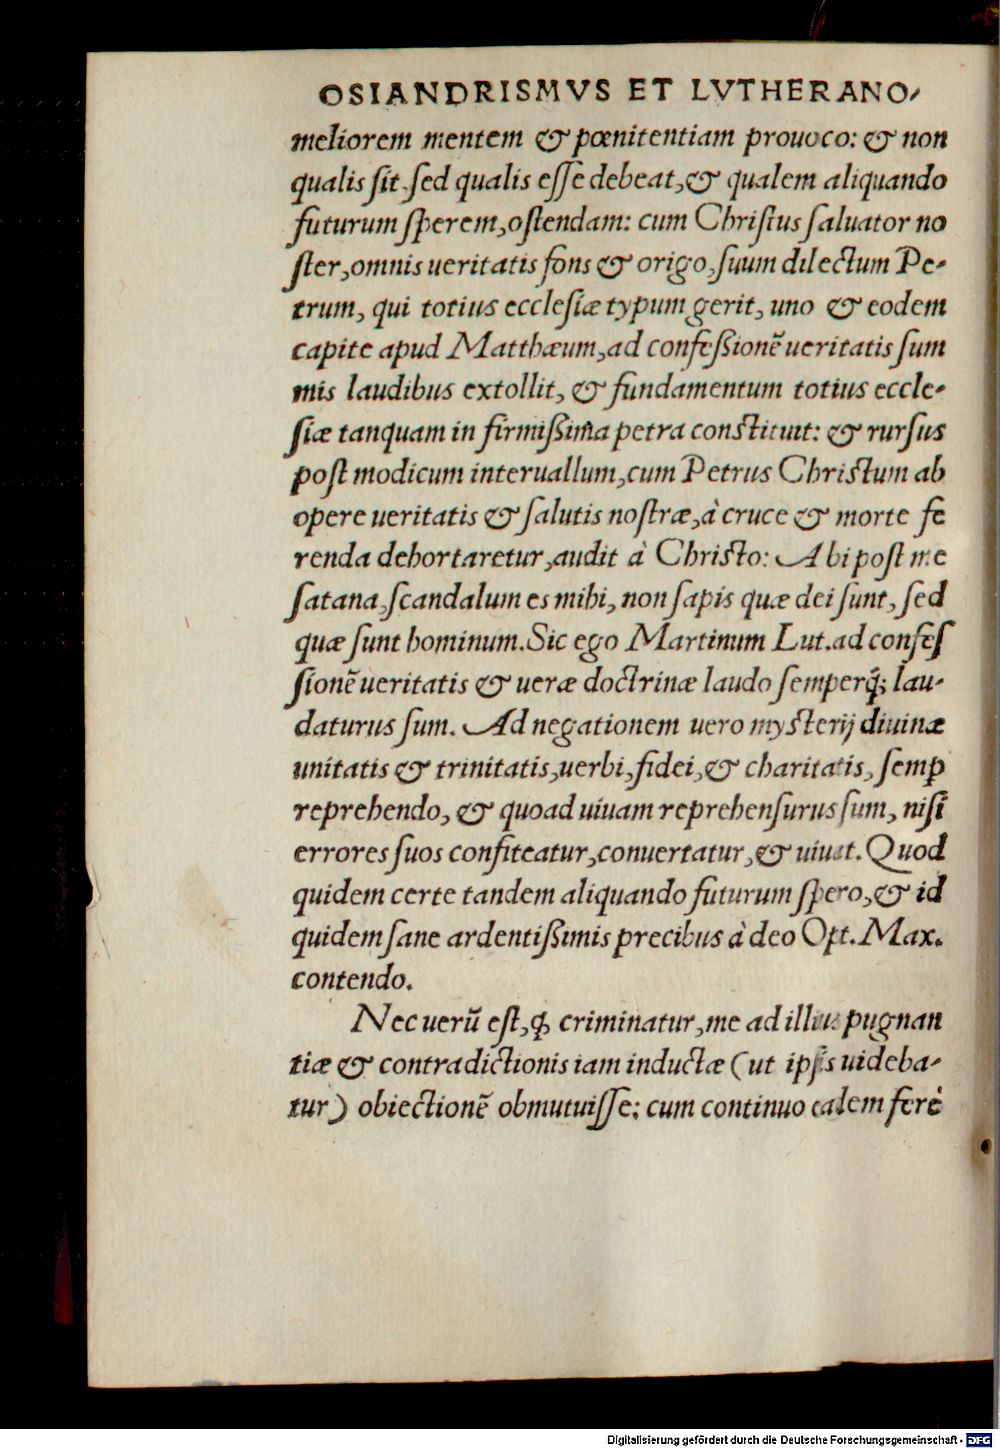 OSIANDRISMVS ET LVTHERANO-
meliorem mentem & pœnitentiam prouoco: & non
qualis sit, sed qualis esse debeat, & qualem aliquando
futurum sperem, ostendam: cum Christus saluator no
ster, omnis ueritatis fons & origo, suum dilectum Pe-
trum, qui totius ecclesiæ typum gerit, uno & eodem
capite apud Matthæum, ad confeßionē ueritatis sum
mis laudibus extollit, & fundamentum totius eccle-
siæ tanquam in firmißima petra constituit: & rursus
post modicum interuallum, cum Petrus Christum ab
opere ueritatis & salutis nostræ, à cruce & morte fe
renda dehortaretur, audit à Christo: Abi post me
satana, scandalum es mihi, non sapis quæ dei sunt, sed
quæ sunt hominum. Sic ego Martinum Lut. ad confes
sionē ueritatis & ueræ doctrinæ laudo semperq́; lau-
daturus sum. Ad negationem uero mysterij diuinæ
unitatis & trinitatis, uerbi, fidei, & charitatis, semꝑ
reprehendo, & quoad uiuam reprehensurus sum, nisi
errores suos confiteatur, conuertatur, & uiuat. Quod
quidem certe tandem aliquando futurum spero, & id
quidem sane ardentißimis precibus à deo Opt. Max.
contendo.
Nec uerū est, ꝙ criminatur, me ad illius pugnan
tiæ & contradictionis iam inductæ (ut ipsis uideba-
tur) obiectionē obmutuisse: cum continuo eadem ferè
Digitalisierung gefördert durch die Deutsche Forschungsgemeinschaft - DFG